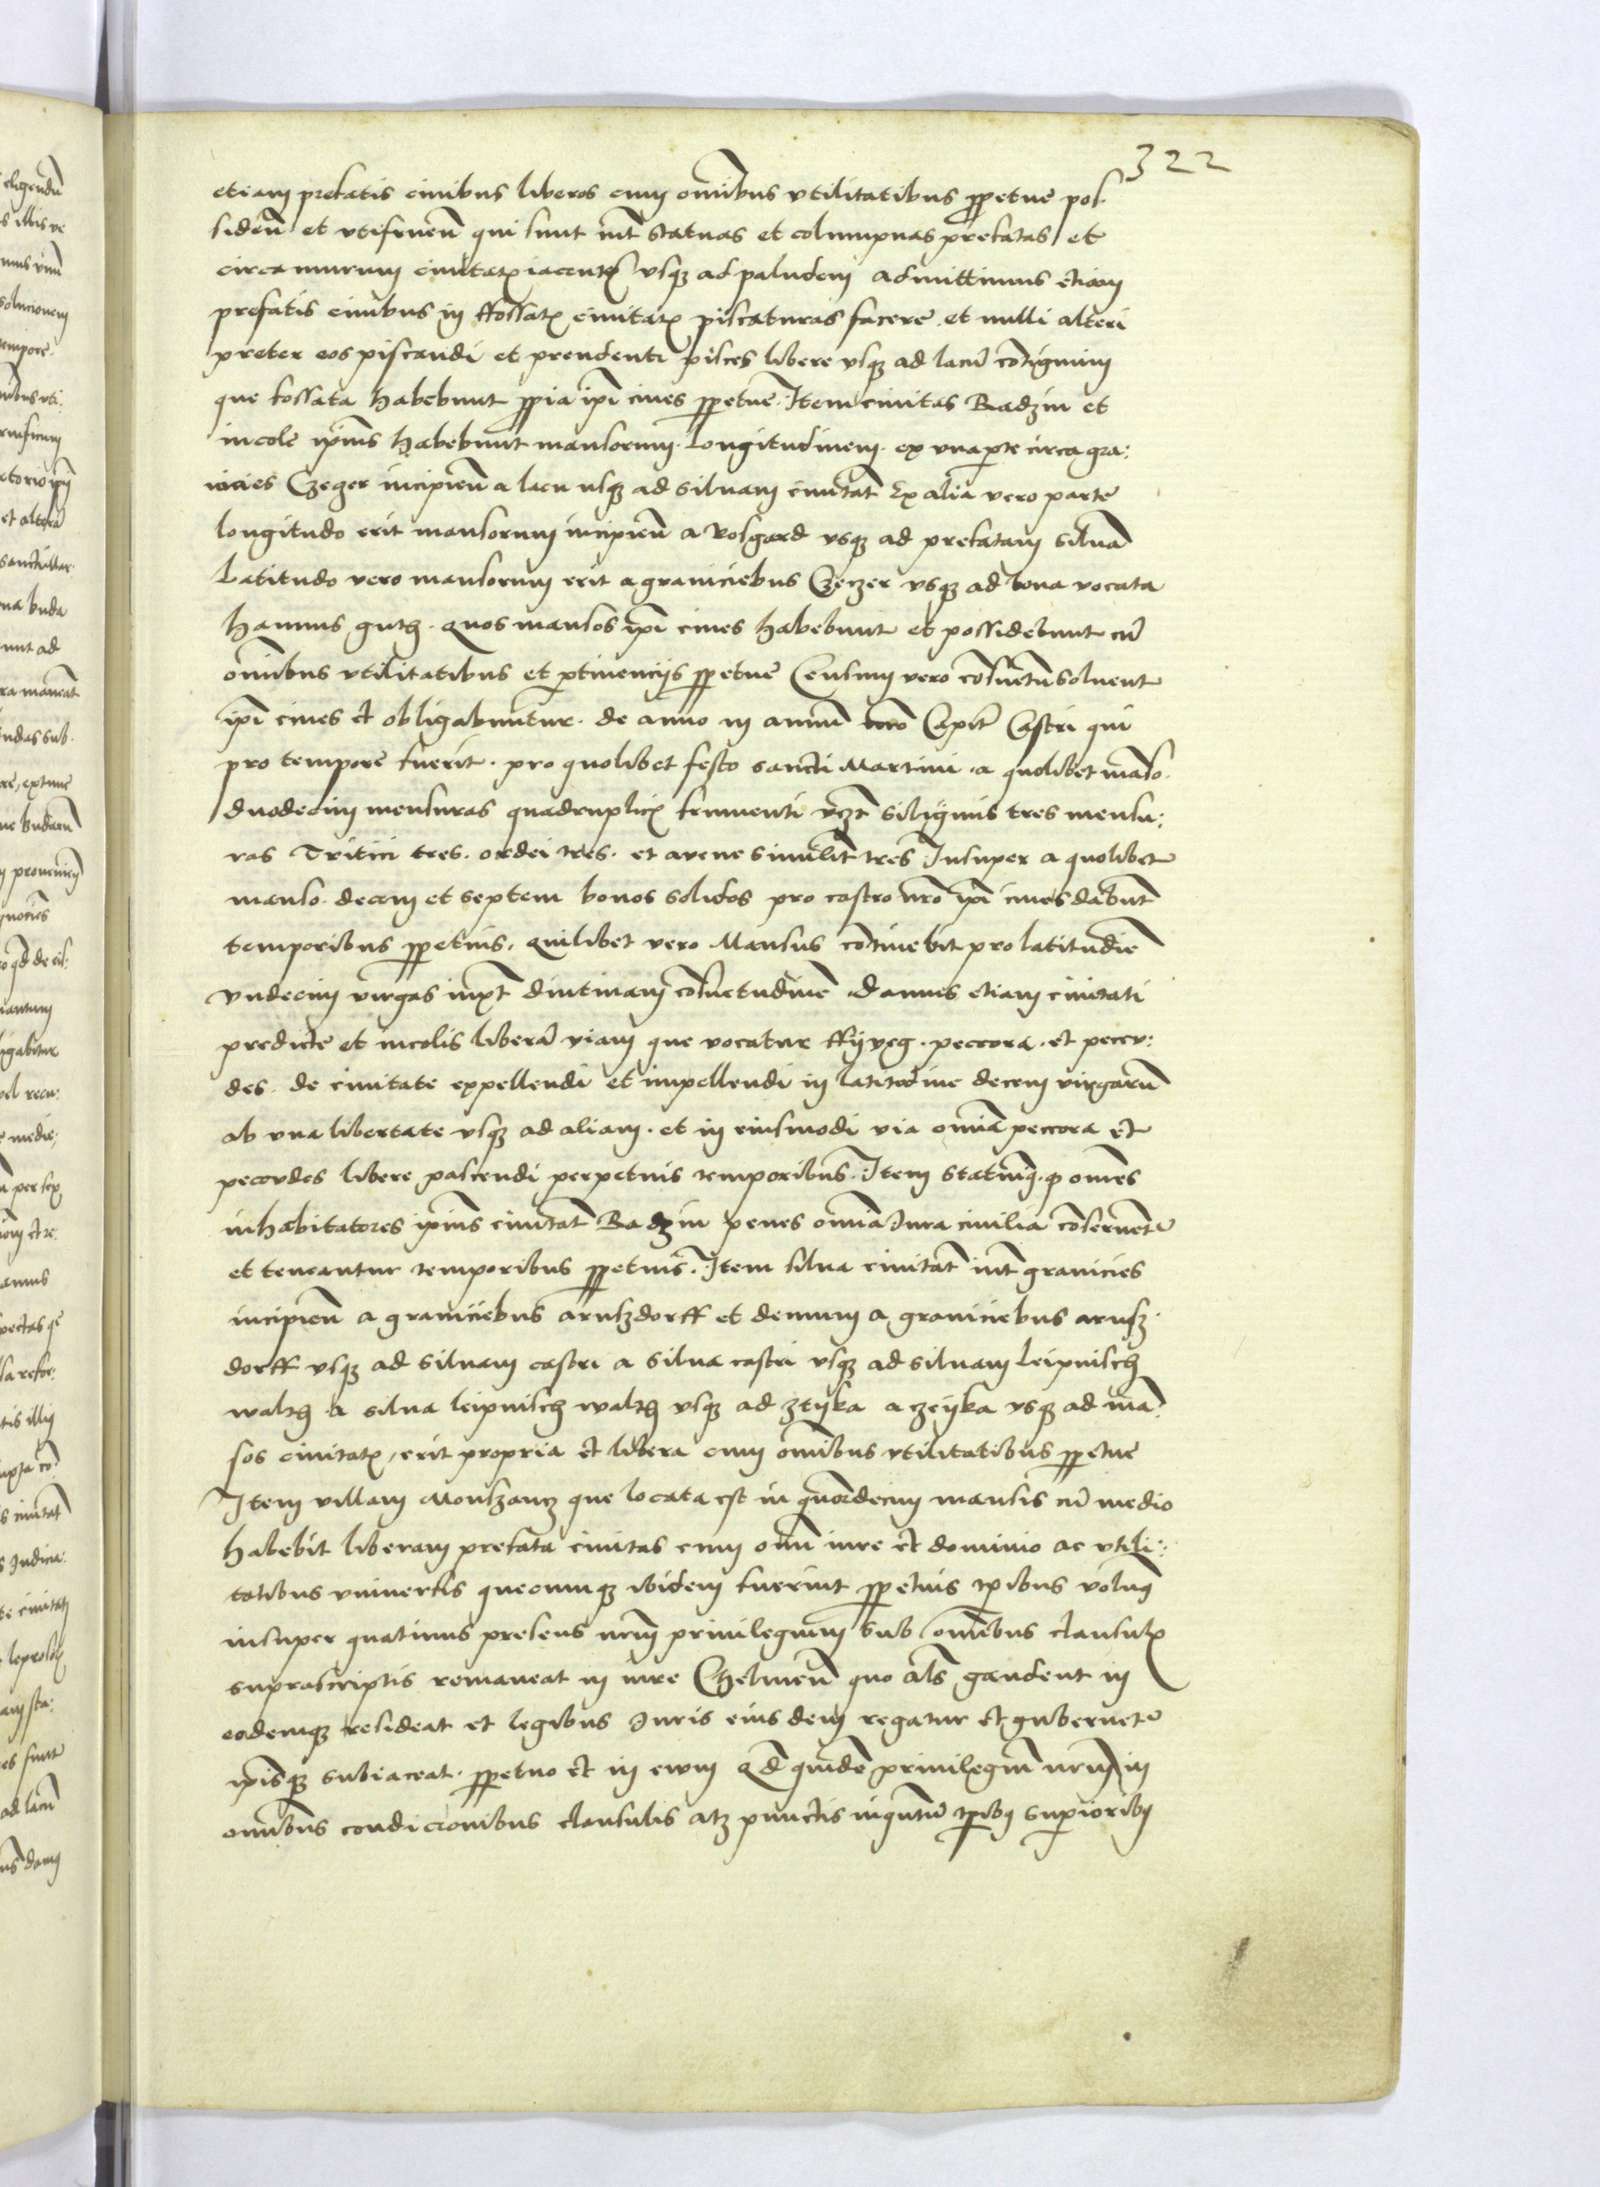 322
etiam prefatis ciuibus liberos cum om̄ibus vtilitatibus ꝑpetue pos:
siden̄ et vtifruen̄ qui sunt int̄ statuas et columpnas prefatas et
circa murum ciuitatꝭ iacentꝭ vsqꝫ ad paludem admittimus etiam
prefatis ciuibus in ffossatꝭ ciuitatꝭ piscaturas facere et nulli alteri
preter eos piscandi et prendenti pisces libere vsqꝫ ad lacū cōtiguum
que fossata habebunt ꝓpia ip̄i ciues ꝑpetue. Item ciuitas Radzin et
incole ip̄ius habebunt mansorum longitudinem ex vna ꝑte circa gra:
nicies Czeger incipien̄ a lacu usqꝫ ad siluam ciuitat̄ Ex alia vero parte
longitudo erit mansorum incipien̄ a Rosgard vsqꝫ ad prefatam siluā
Latitudo vero mansorum erit a graniciebus Czeczer vsqꝫ ad bona vocata
Hannus guth. quos mansos ip̄i ciues habebunt et possidebunt cū
om̄ibus vtilitatibus et ꝑtinencijs ꝑpetue Censum vero cōsuetū soluent
ip̄i ciues et obligabuntur. de anno in annū Capit̄ Castri qui
pro tempore fuerit. pro quolibet festo sancti Martini a quolibet māso
duodecim mensuras quadruplicꝭ frumenti vꝫt siliginis tres mensu:
ras Tritici tres. ordei tres. et avene similit̄ tres Insuper a quolibet
manso. decem et septem bonos solidos pro castro nr̄o ip̄i ciues dabunt
temporibus ꝑpetuis. quilibet vero Mansus cōtinebit pro latitudīe
vndecim virgas iuxt̄ diutinam cōsuetudinē Damus etiam ciuitati
predicte et incolis liberā viam que vocatur ffijveg. peccora. et pecu:
des. de ciuitate expellendi et impellendi in latitudine decem virgarū
ab vna libertate vsqꝫ ad aliam. et in eiusmodi via om̄ia peccora et
pecudes libere pascendi perpetuis temporibus. Item statuimꝰ ꝙ om̄es
inhabitatores ip̄ius ciuitat̄ Radzin penes om̄ia Iura ciuilia cōseruent̄
et teneantur temporibus ꝑpetuis. Item silua ciuitat̄ int̄ granicies
incipien̄ a graniciebus arnszdorff et demum a graniciebus arnsz
dorff vsqꝫ ad siluam castri a silua castri vsqꝫ ad siluam Leipnisch
walth a silua leipnisch waltth vsqꝫ ad ztijka a cztijka vsqꝫ ad mā
sos ciuitatꝭ, erit propria et libera cum om̄ibus vtilitatibus ꝑpetue
Item villam Monszancz que locata est in quordecim mansis cū medio
habebit liberam prefata ciuitas cum om̄i iure et dominio ac vtili:
tatibus vniuersis quecumqꝫ ibidem fuerint ꝑpetuis tꝑibus volumꝰ
insuper quatinus presens nr̄m priuilegium sub om̄ibus clausulꝭ
suprascriptis remaneat in iure Chelmen̄ quo al̄s gaudent in
eodemqꝫ resideat et legibus Iuris eius dem regatur et gubernet̄
ip̄isqꝫ subiaceat. ꝑpetuo et in ewm Qd̄ quidē priuilegiū nr̄m in
om̄ibus condicionibus clausulis atqꝫ punctis inquntū tꝑibꝰ suꝑioribꝰ